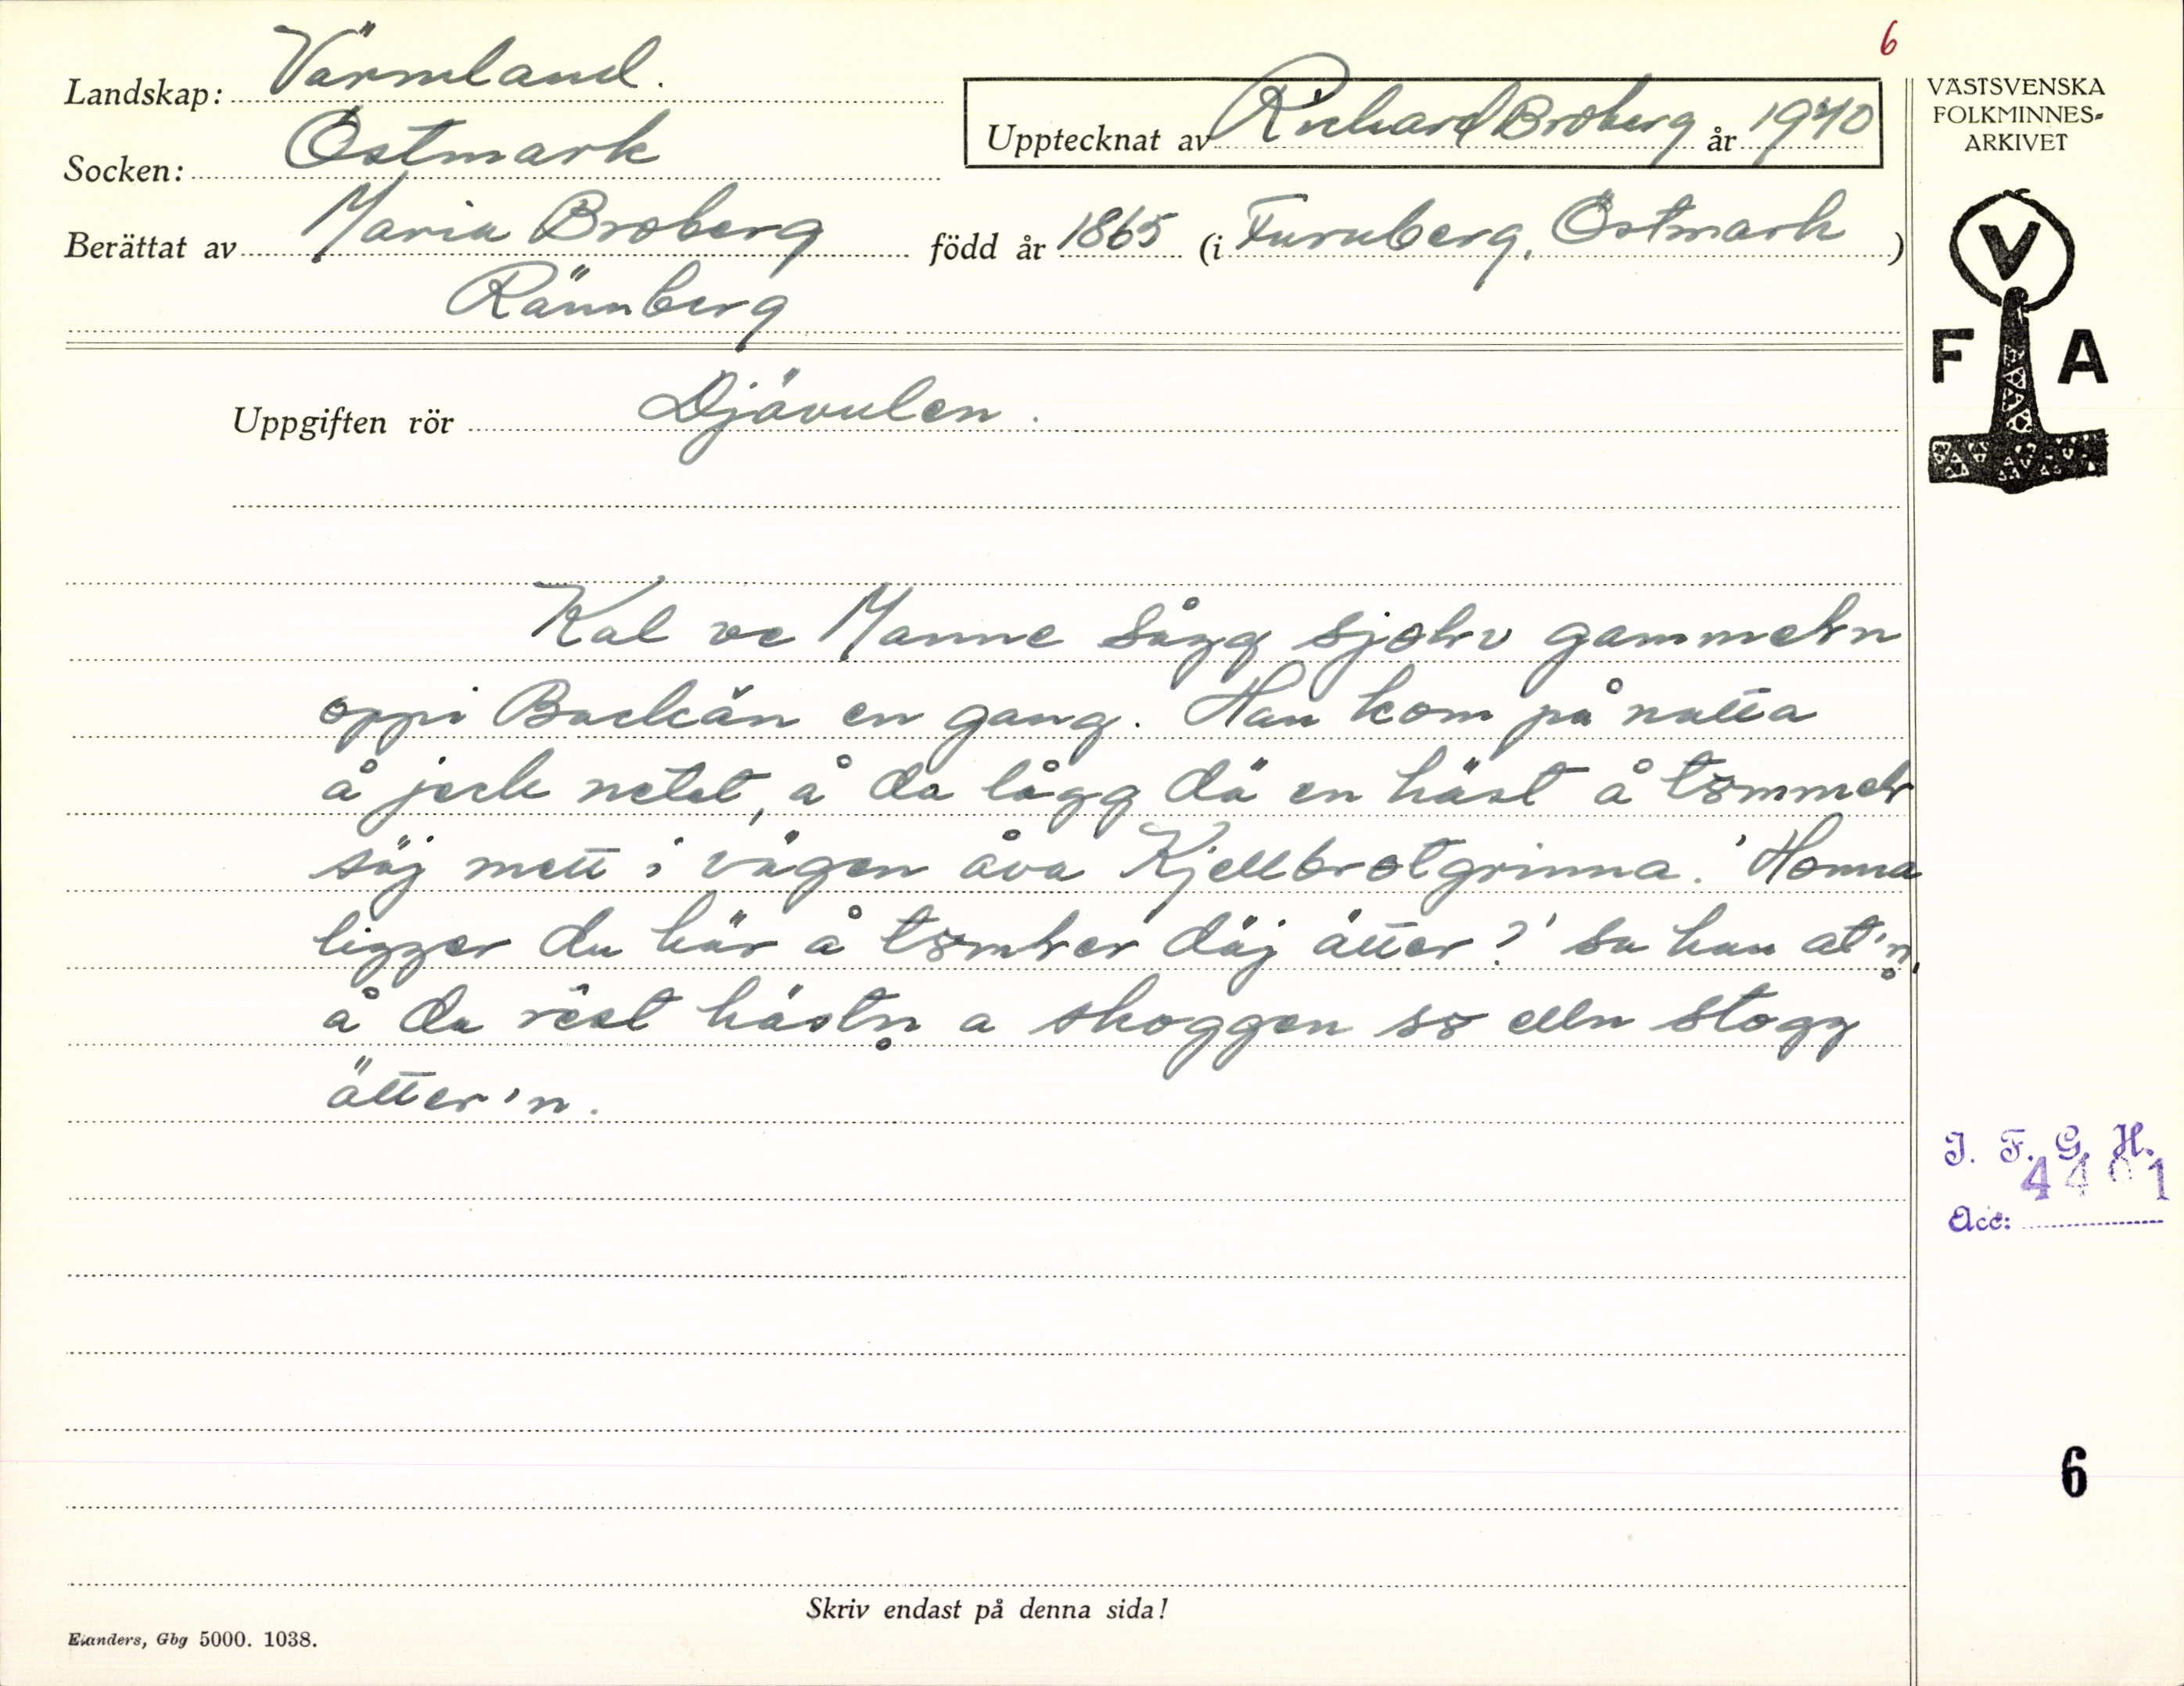 6
Landskap: Värmland.
Socken: Östmark
Upptecknat av Richard Broberg år 1940
VÄSTSVENSKA
FOLKMINNES-
ARKIVET
Berättat av Maria Broberg född år 1865 (i Furuberg, Östmark)
Rännberg
V
F A
Uppgiften rör Djävulen.
Kal ve Manne sågg
oppi en gang. Han kom på natta
å jeck netet, å da lågg dä en häst å
säj mett i vägen åva Kjellbrotgrinna. 'Honna
ligger du här å däj ätter?' sa han at'n,
å da rest hästn a skoggen sz elln stogg
ätter'n.
I. F. G. H.
Acc: 4401
6
Skriv endast på denna sida!
Elanders, Gbg 5000. 1038.